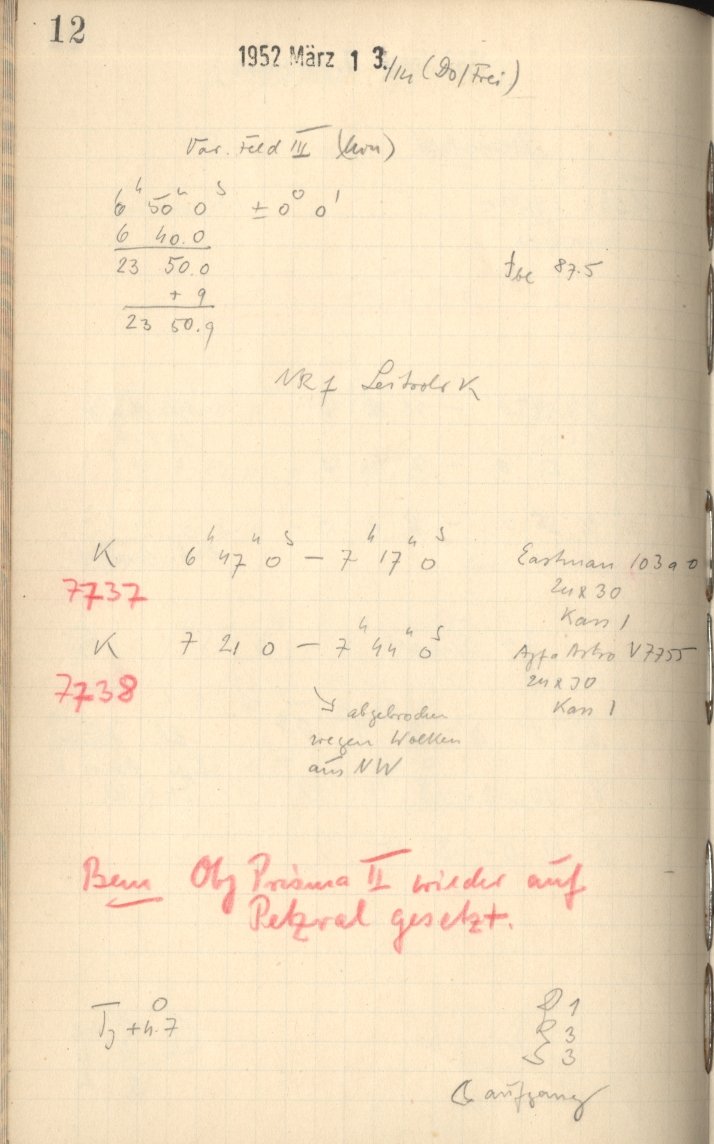 12
1952 März 13./14 (Do/Frei)
Var. Feld III (Mon)
6ʰ 50ᵐ 0ˢ ± 0° 0'
6 40.0
23 50.0
+ 9
23 50.9
87.5
Leitrohr K
K 6ʰ 47ᵐ 0ˢ – 7ʰ 17ᵐ 0ˢ Eastman 103a0
7737
24 x 30
Kass 1
K 7 21 0 – 7ʰ 44ᵐ 0ˢ Agfa Astro V7755
7738
24 x 30
Kass 1
↘ abgebrochen
wegen Wolken
aus NW
Bem Obj Prisma II wieder auf
Petzval gesetzt.
+4.7°
1
3
S 3
☾ aufgang